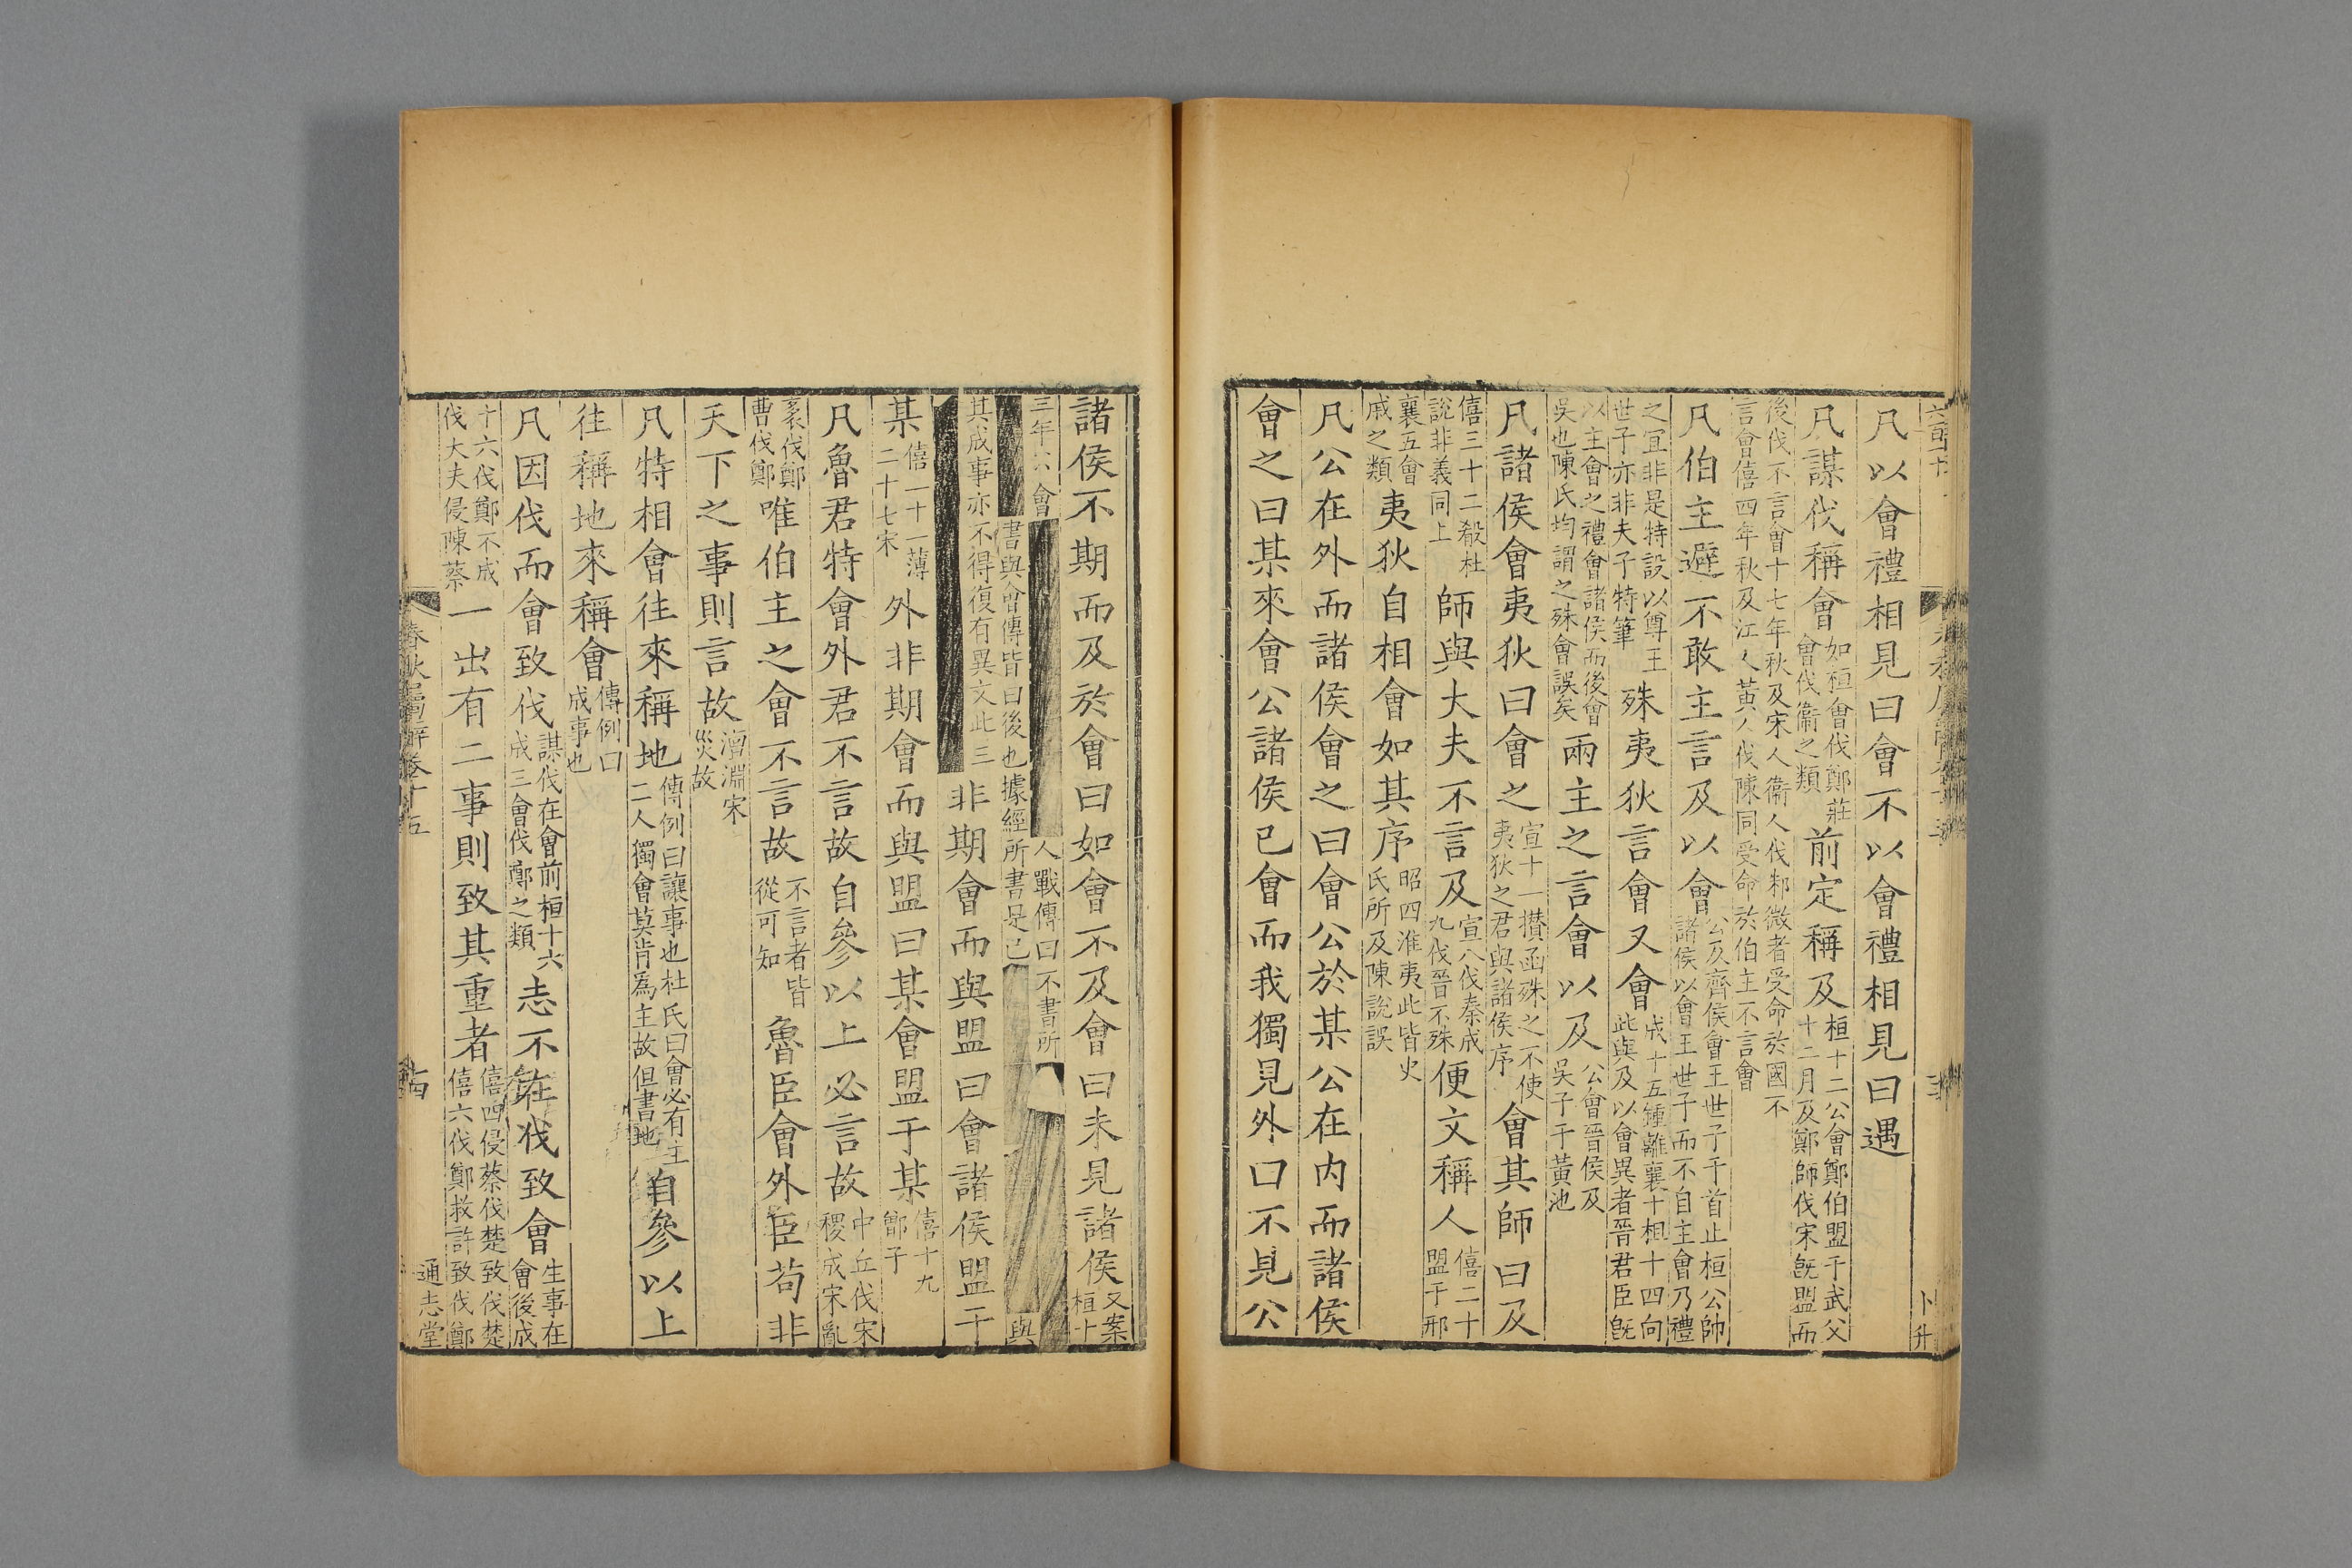 凡以會禮相見曰會不以會禮相見曰遇
凡謀伐稱會如桓會伐鄭莊會伐衞之類前定稱及桓十二公會鄭伯盟于武父十二月及鄭師伐宋旣盟而
後伐不言會十七年秋及宋人衞人伐邾微者受命於國不言會僖四年秋及江人黃人伐陳同受命於伯主不言會
凡伯主避不敢主言及以會公及齊侯會王世子于首止桓公帥諸侯以會王世子而不自主會乃禮
之宜非是特設以尊王世子亦非夫子特筆殊夷狄言會又會成十五鍾離襄十柤十四向此與及以會異者晉君臣旣
以主會之禮會諸侯而後會吳也陳氏均謂之殊會誤矣兩主之言會以及公會晉侯及吳子于黃池
凡諸侯會夷狄曰會之宣十一攅函殊之不使夷狄之君與諸侯序會其師曰及
僖三十二殽杜說非義同上師與大夫不言及宣八伐秦成九伐晉不殊便文稱人僖二十盟于邢
襄五會戚之類夷狄自相會如其序昭四淮夷此皆史氏所及陳說誤
凡公在外而諸侯會之曰會公於某公在內而諸侯
會之曰某來會公諸侯已會而我獨見外曰不見公
諸侯不期而及於會曰如會不及會曰未見諸侯又案桓十
三年六會人戰傳曰不書所
書與會傳皆曰後也據經所書是已與
其成事亦不得復有異文此三非期會而與盟曰會諸侯盟于
某僖二十一薄二十七宋外非期會而與盟曰某會盟于某僖十九鄫子
凡魯君特會外君不言故自參以上必言故中丘伐宋稷成宋亂
袲伐鄭曹伐鄭唯伯主之會不言故不言者皆從可知魯臣會外臣苟非
天下之事則言故澶淵宋災故
凡特相會往來稱地傳例曰讓事也杜氏曰會必有主二人獨會莫肯爲主故但書地自參以上
往稱地來稱會傳例曰成事也
凡因伐而會致伐謀伐在會前桓十六成三會伐鄭之類志不在伐致會生事在會後成
十六伐鄭不成伐大夫侵陳蔡一出有二事則致其重者僖四侵蔡伐楚致伐楚僖六伐鄭救許致伐鄭
通志堂